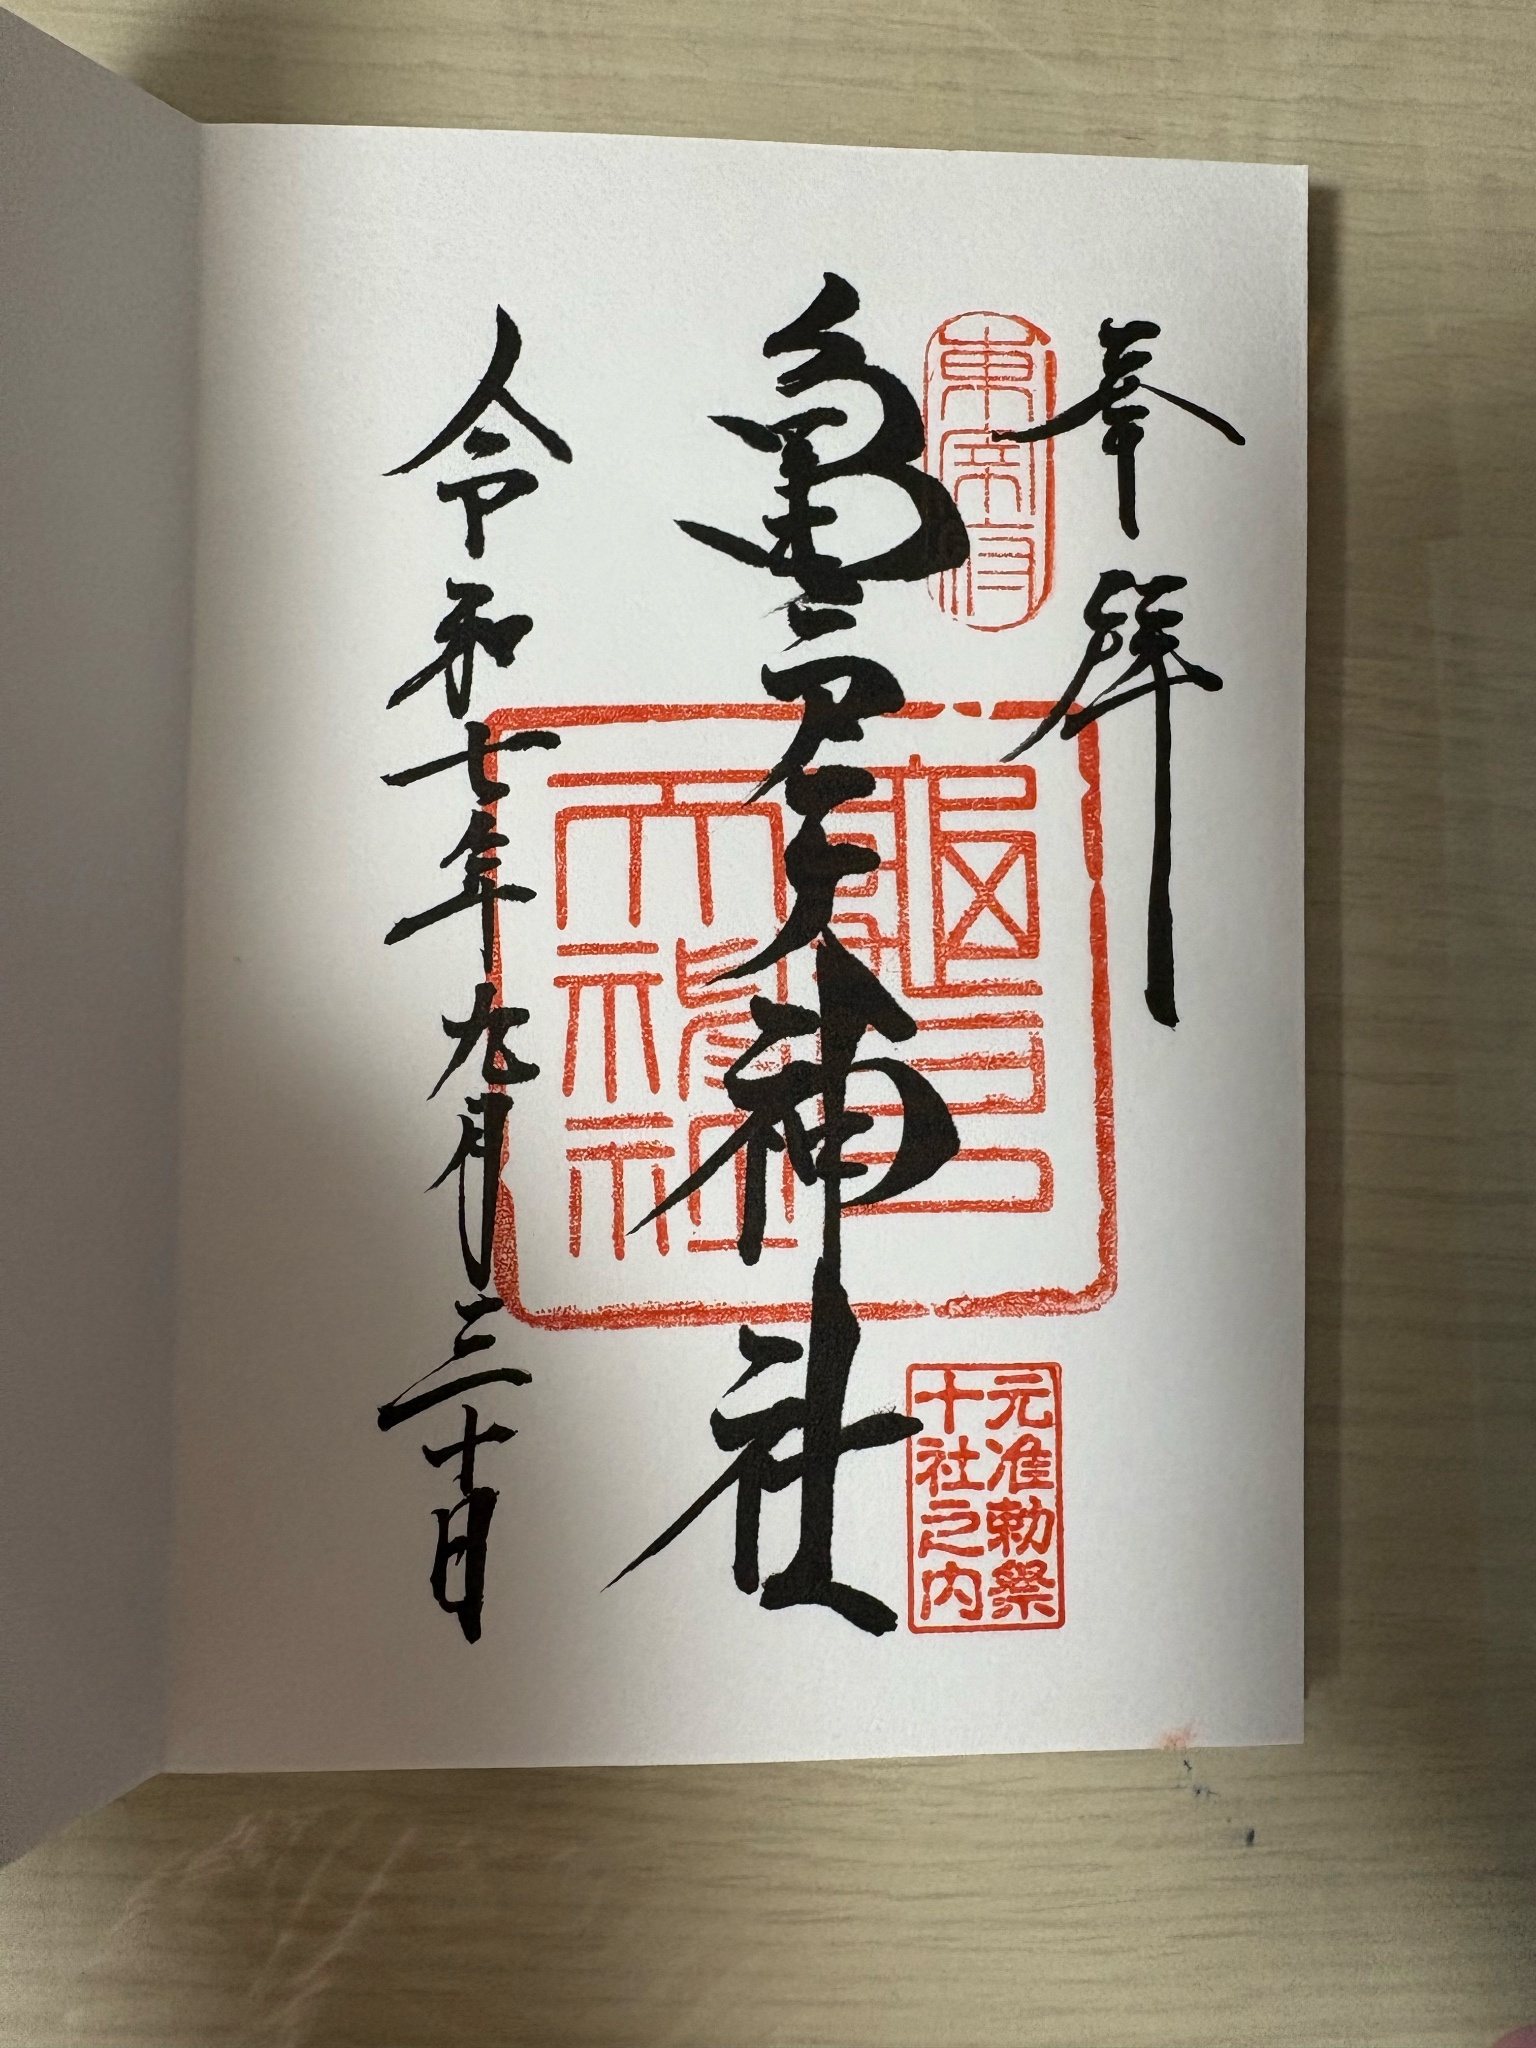 奉拝
東宰府
亀戸天神社
龜戸天神社
元准勅祭
十社之内
令和七年九月三十日